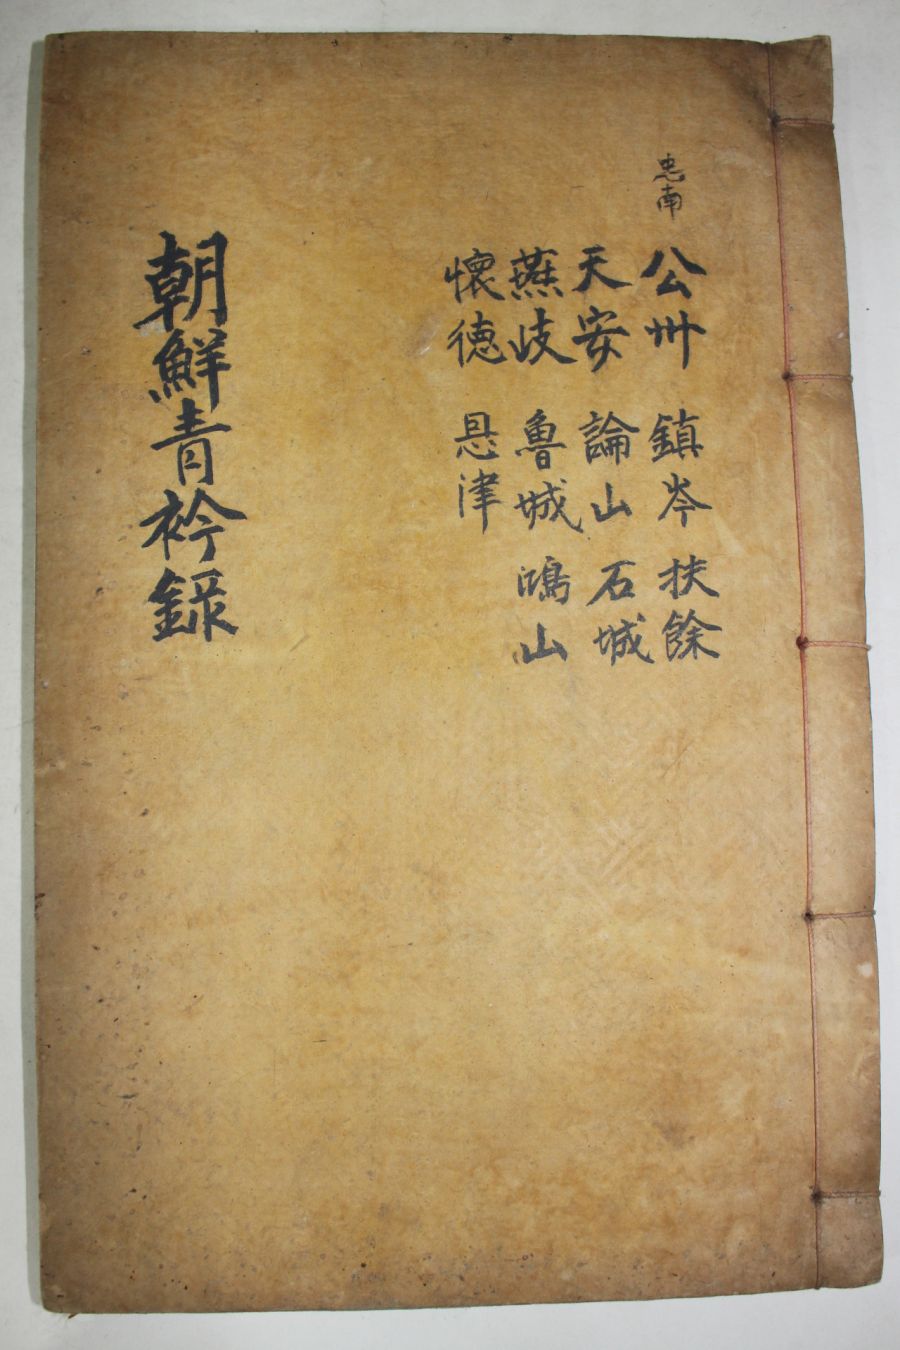 忠南
公州 鎮岑 扶餘
天安 論山 石城
燕岐 魯城 鴻山
懷德 恩津
朝鮮青衿錄